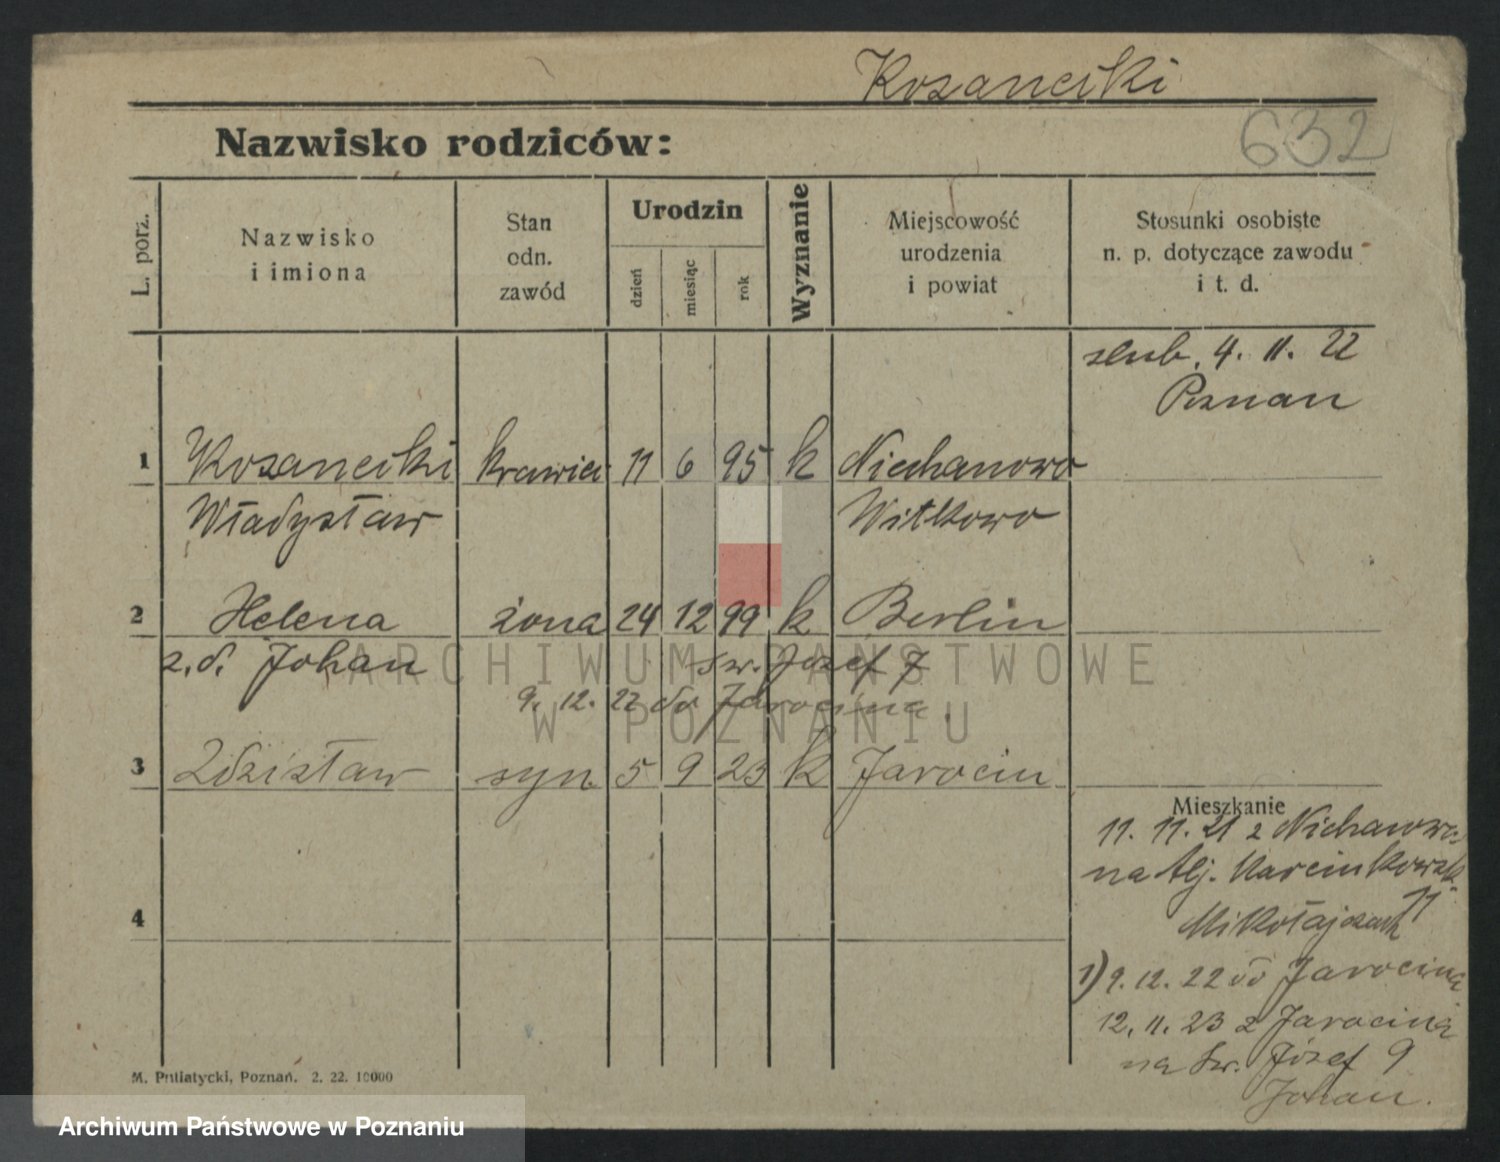 Kosanecki
Nazwisko rodziców:
632
L. porz.
Nazwisko
i imiona
Stan
odn.
zawód
Urodzin
dzień
miesiąc
rok
Wyznanie
Miejscowość
urodzenia
i powiat
Stosunki osobiste
n. p. dotyczące zawodu
i t. d.
4. 11. 22
Poznan
1 Kosanecki krawiec 11 6 95 k Niechanowo
Władysław Witkowo
2 Helena żona 24 12 99 k Berlin
z. d. Johan św. Józef 7
9. 12. 22 do Jarocina
3 Zdzisław syn 5 9 23 k Jarocin
Mieszkanie
11. 11. 21 z Nichanowo
na Alj. Marcinkowsk.
11
Mikołajczak
4
1) 9. 12. 22 do Jarocina
12. 11. 23 z Jarocina
na św. Józef 9
Johan.
M. Putiatycki, Poznań. 2. 22. 10000
ARCHIWUM PAŃSTWOWE
W POZNANIU
Archiwum Państwowe w Poznaniu